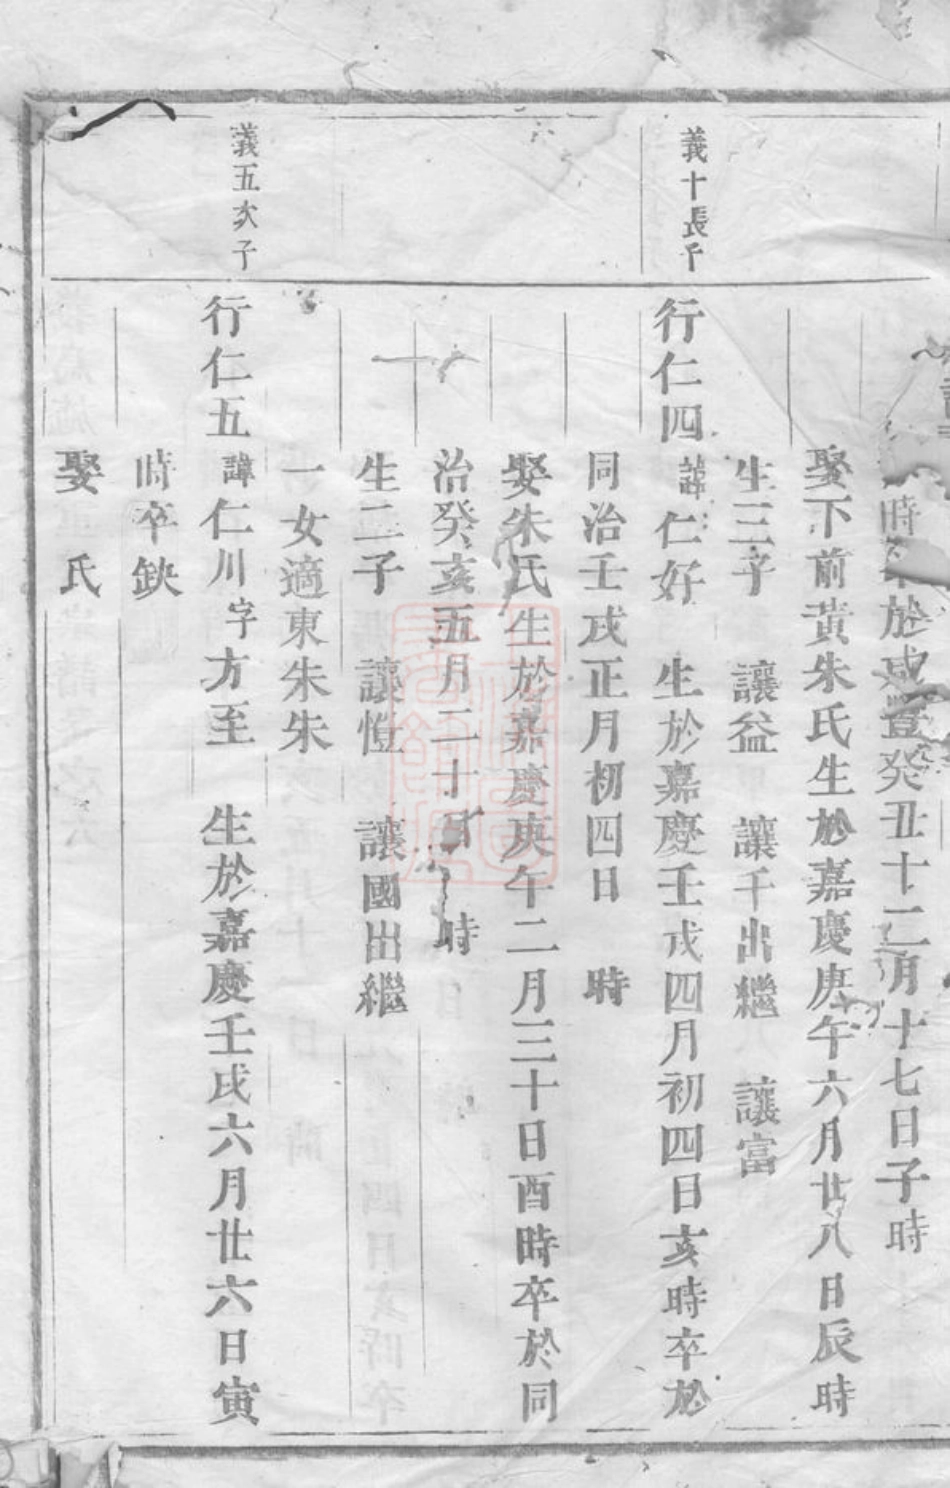 時卒於咸豐癸丑十二月十七日子時
娶下前黃朱氏生於嘉慶庚午六月廿八日辰時
生三子 讓益 讓千出繼 讓富
義十長子
行仁四諱仁好 生於嘉慶壬戌四月初四日亥時卒於
同治壬戌正月初四日 時
娶朱氏生於嘉慶庚午二月三十日酉時卒於同
治癸亥五月二十日 時
生二子 讓愷 讓國出繼
一女適東朱朱
義五次子
行仁五諱仁川字方至 生於嘉慶壬戌六月廿六日寅
時卒缺
娶 氏